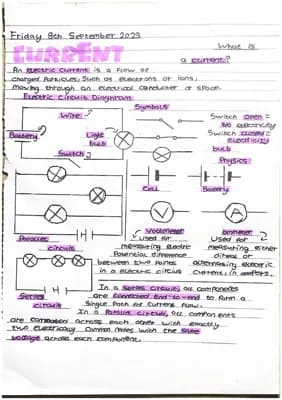 Friday 8th September 2023
CURRENT
What is
a current?
An electric current is a flow of
charged particles, such as electrons or ions,
moving through an electrical conductor or space.
Electric Circuit Diagram
Symbols
Wire
Battery
Light
bulb
Switch
Switch open =
No electricity
Switch closed =
electricity
bulb
Physics
Cell
Battery
V
A
Parallel
circuit
Voltmeter
Used for
measuring electric
Potential difference
between two points
in a electric circuis
ammeter
Used for
measuring either
direct or
alternating electric
current, in ampers.
Series
circuit
In a Series circuit, all components
are connected end-to-end to form a
Single path for current flow.
In a Parallel circuit, all components
are connected across each other with exactly
two electrically common nodes with the same
voltage across each component.